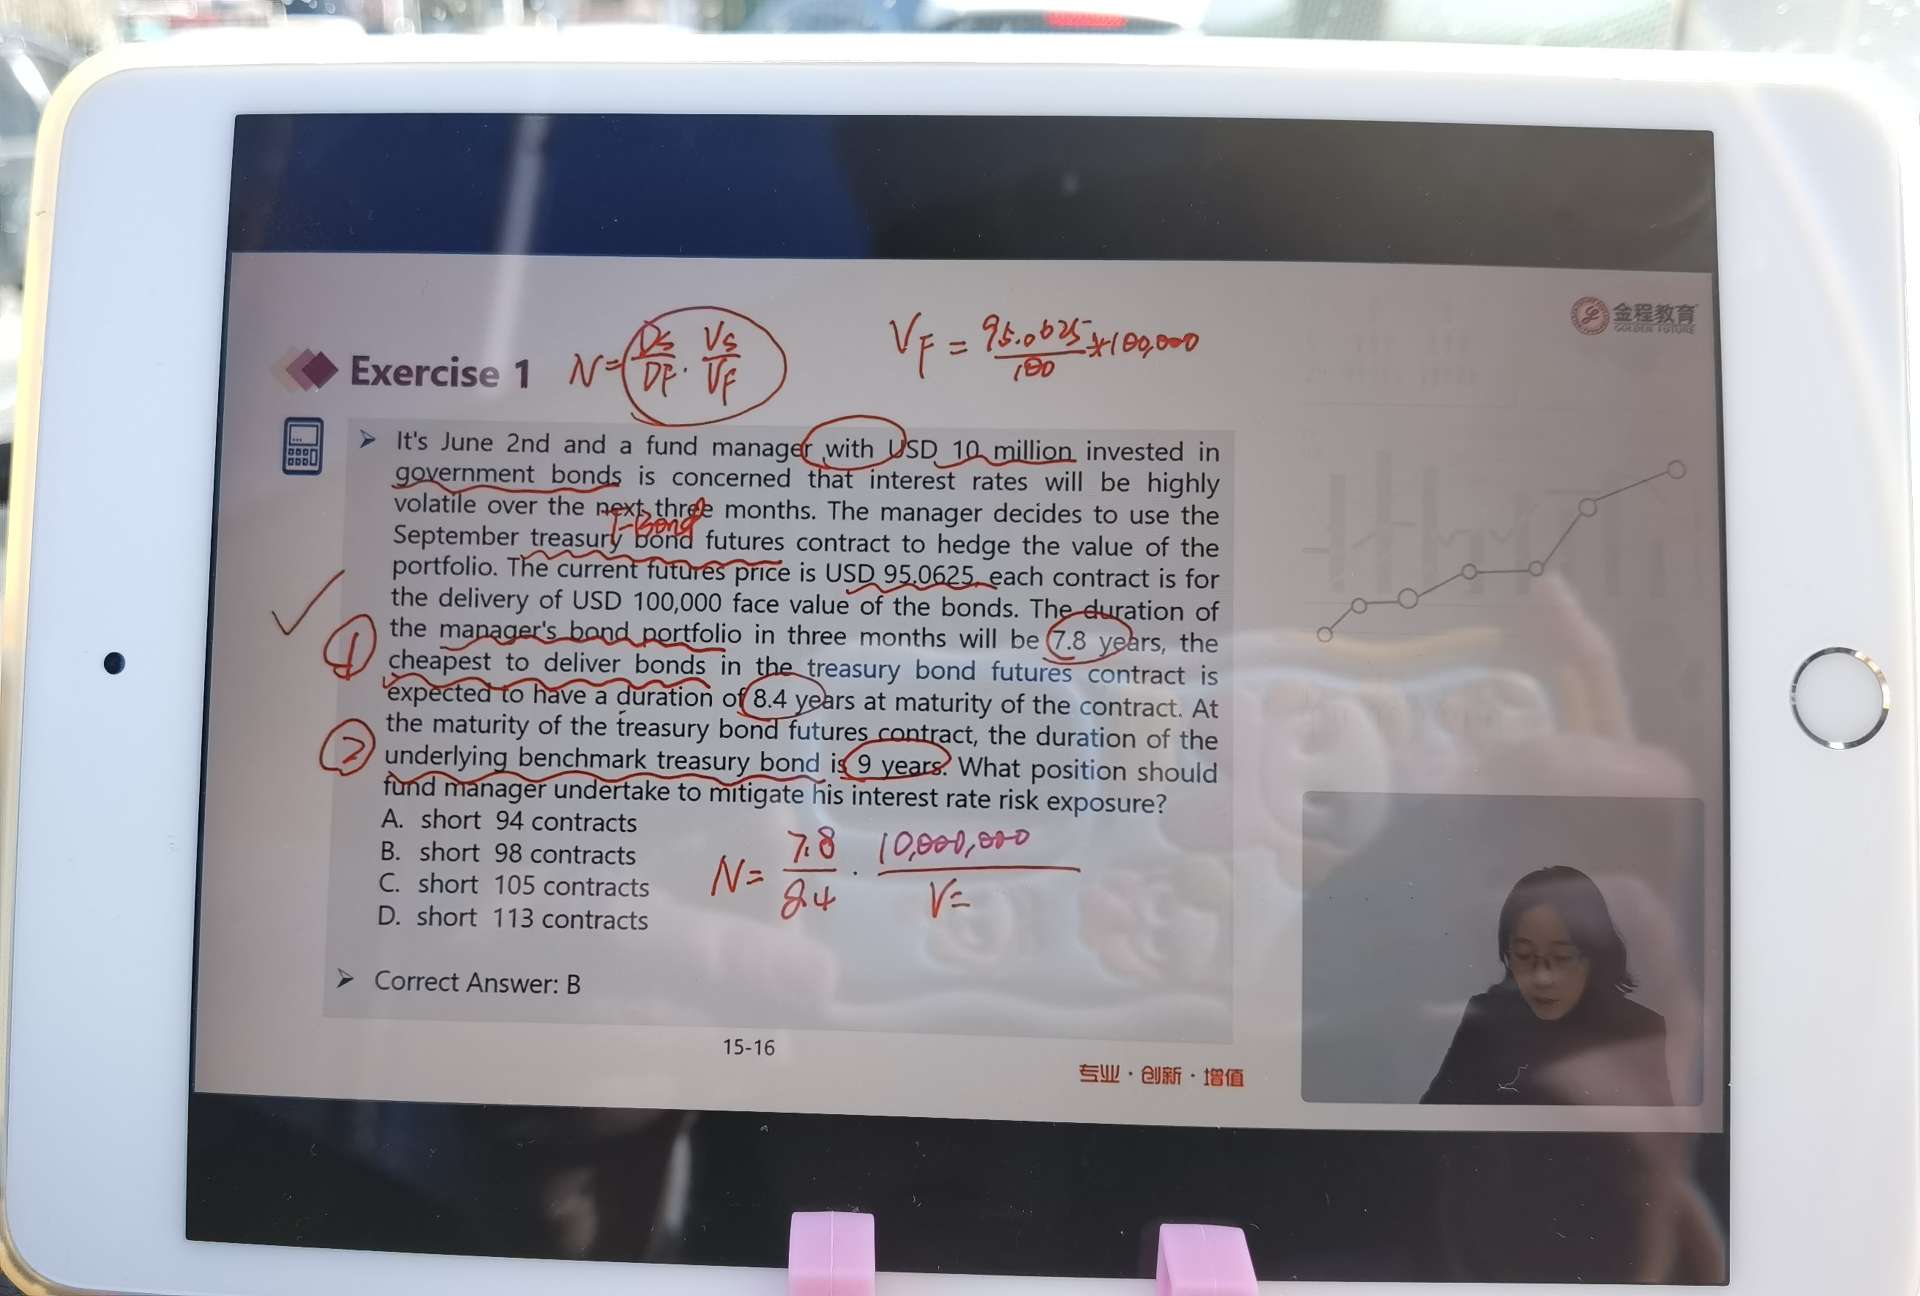 金程教育
GOLDEN FUTURE
Exercise 1
N = DS/DF · VS/VF
VF = 95.0625/100 × 100,000
➢ It's June 2nd and a fund manager with USD 10 million invested in
government bonds is concerned that interest rates will be highly
volatile over the next three months. The manager decides to use the
T-Bond
September treasury bond futures contract to hedge the value of the
portfolio. The current futures price is USD 95.0625, each contract is for
the delivery of USD 100,000 face value of the bonds. The duration of
① the manager's bond portfolio in three months will be 7.8 years, the
cheapest to deliver bonds in the treasury bond futures contract is
expected to have a duration of 8.4 years at maturity of the contract. At
the maturity of the treasury bond futures contract, the duration of the
② underlying benchmark treasury bond is 9 years. What position should
fund manager undertake to mitigate his interest rate risk exposure?
A. short 94 contracts
B. short 98 contracts
C. short 105 contracts
D. short 113 contracts
N = 7.8/8.4 · 10,000,000/V=
➢ Correct Answer: B
15-16
专业·创新·增值